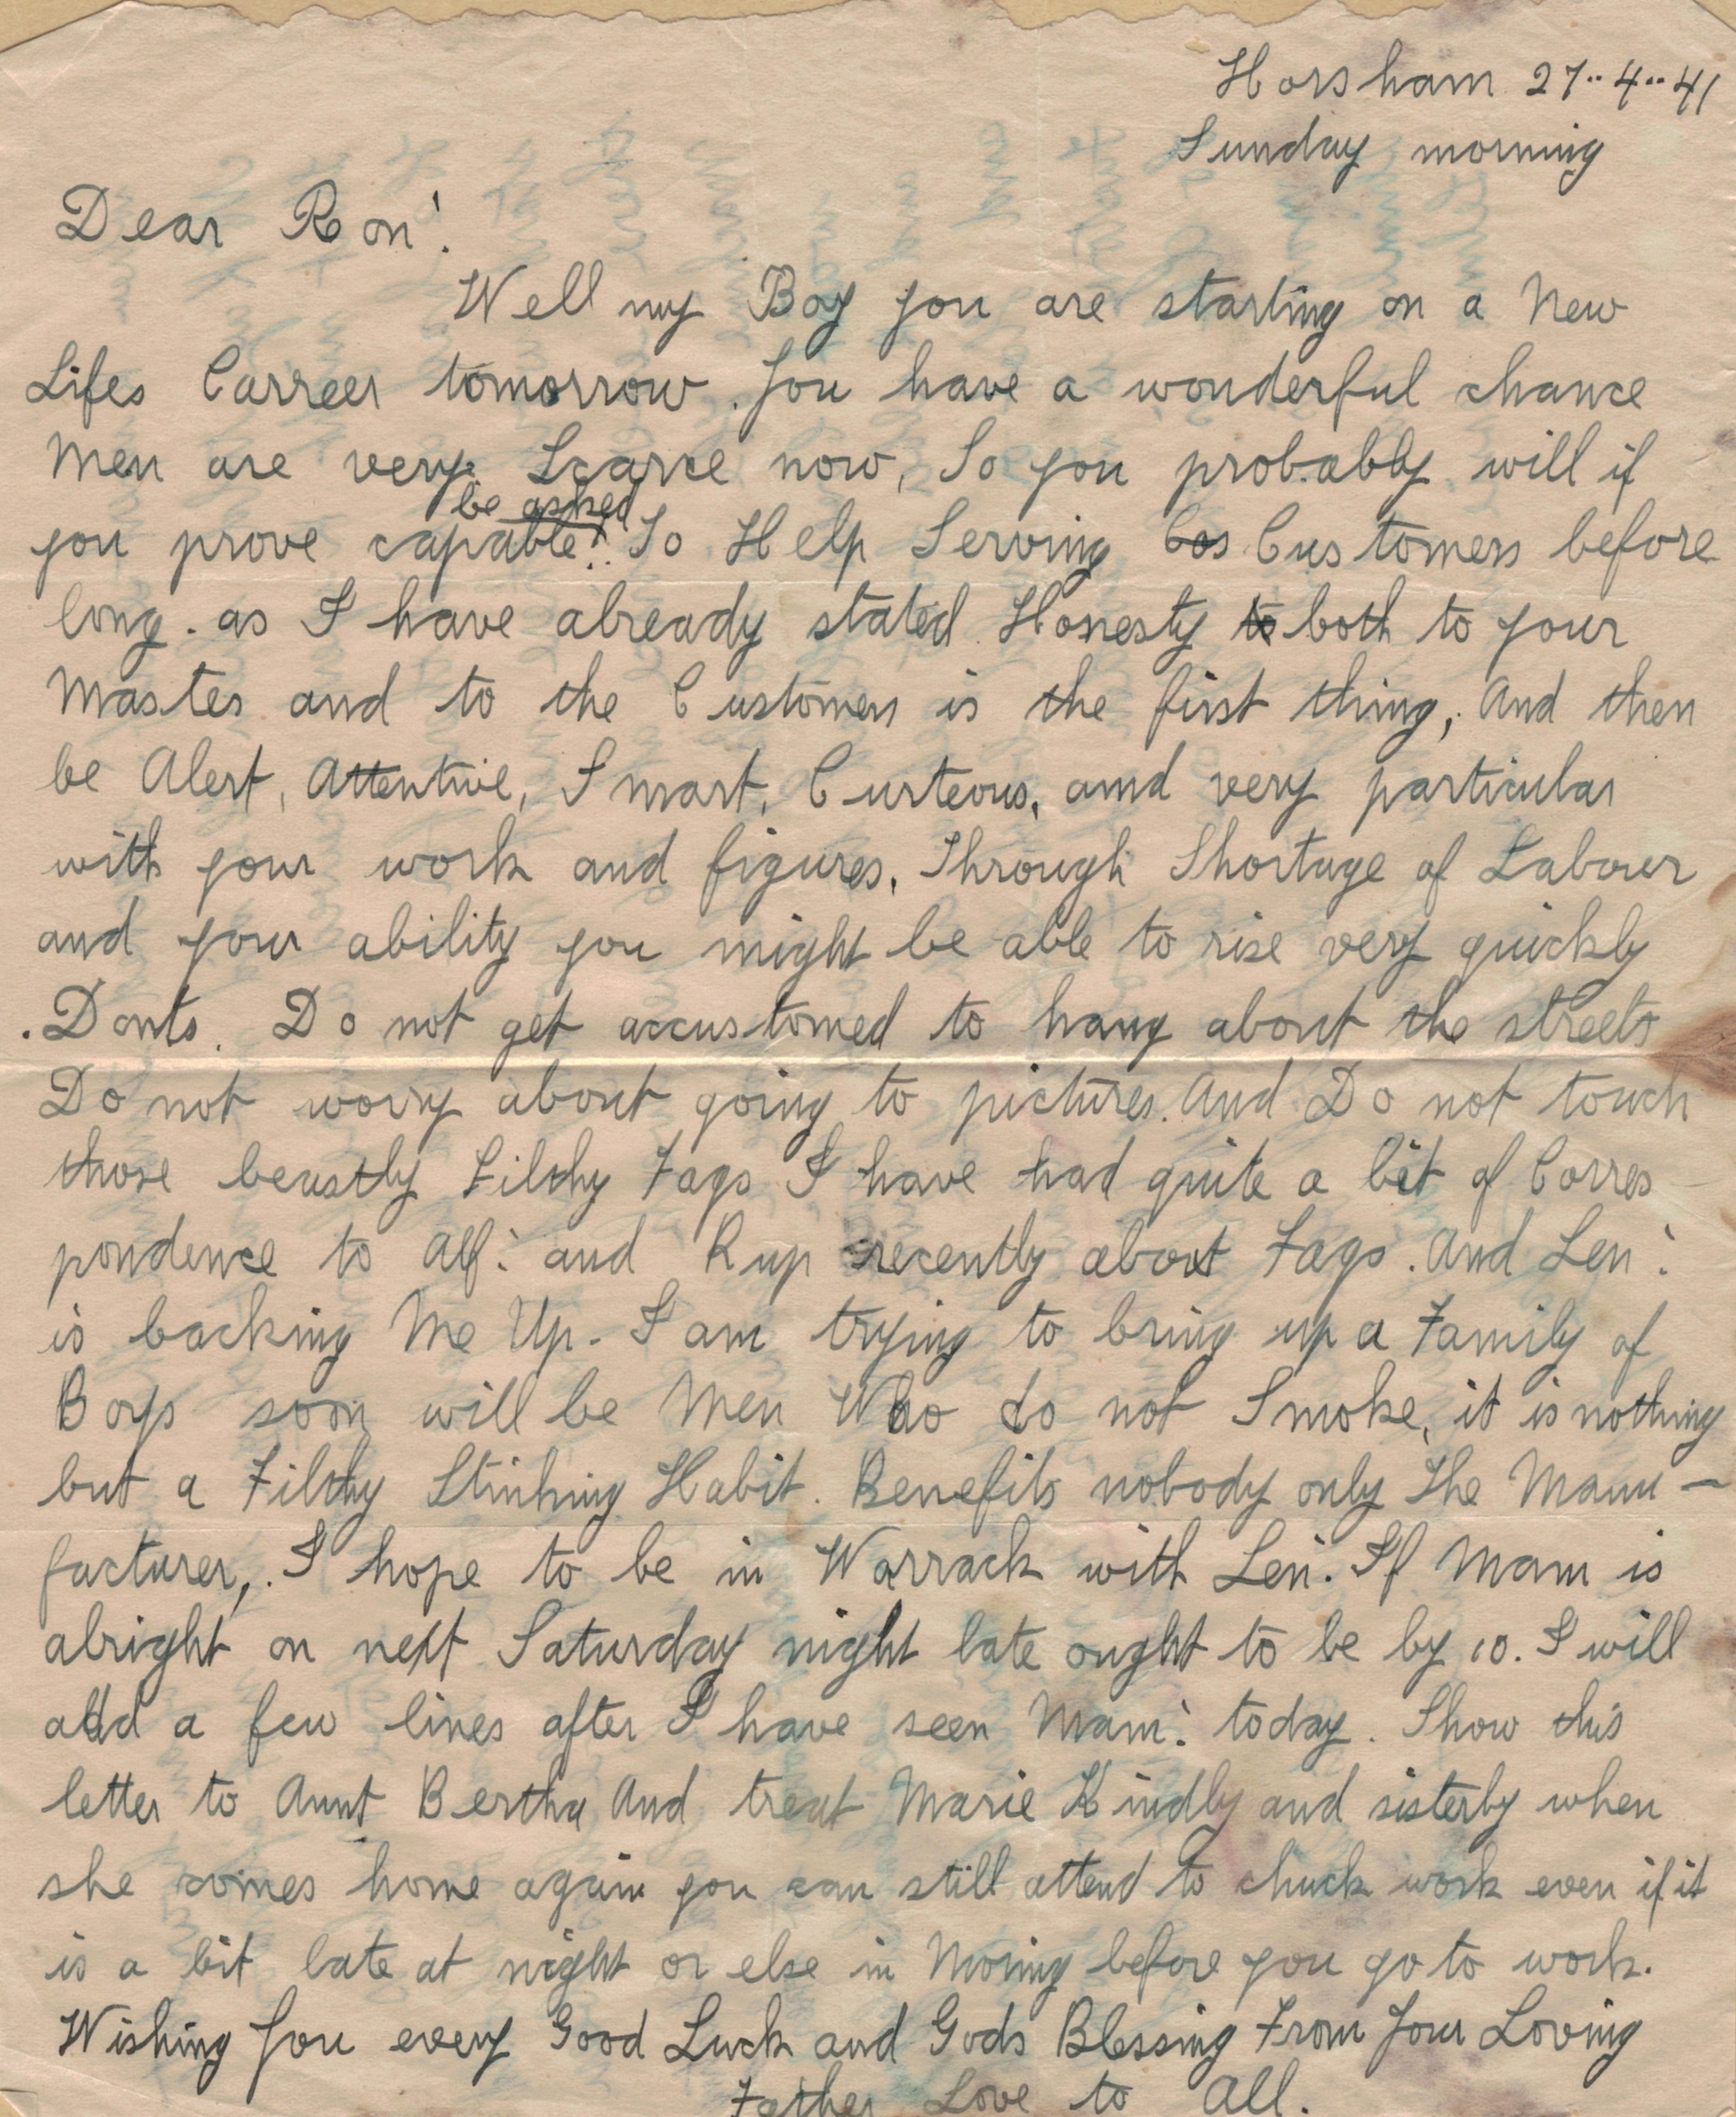 Horsham 27..4..41
Sunday morning
Dear Ron!
Well my Boy you are starting on a New
Lifes Carreer tomorrow. You have a wonderful chance
Men are very Scarce now, So you probably will if
be asked
you prove capable!. To Help Serving Cos Customers before
long. as I have already stated Honesty to both to your
Master and to the Customers is the first thing, And then
be Alert, Attentive, Smart, Curteous, and very particular
with your work and figures, Through Shortage of Labour
and your ability you might be able to rise very quickly
. Donts. Do not get accustomed to hang about the streets
Do not worry about going to pictures. And Do not touch
those beastly Filthy Fags I have had quite a bit of Corres
pondence to Alf: and Rup recently about Fags. And Len:
is backing Me Up. I am trying to bring up a Family of
Boys soon will be Men Who do not Smoke, it is nothing
but a Filthy Stinking Habit. Benefits nobody only The Manu-
facturer,. I hope to be in Warrack with Len. If Mam is
alright on next Saturday night late ought to be by 10. I will
add a few lines after I have seen Mam: today. Show this
letter to Aunt Bertha And treat Marie Kindly and sisterly when
she comes home again you can still attend to chuck work even if it
is a bit late at night or else in Moring before you go to work.
Wishing You every Good Luck and Gods Blessing From Your Loving
Father Love to All.